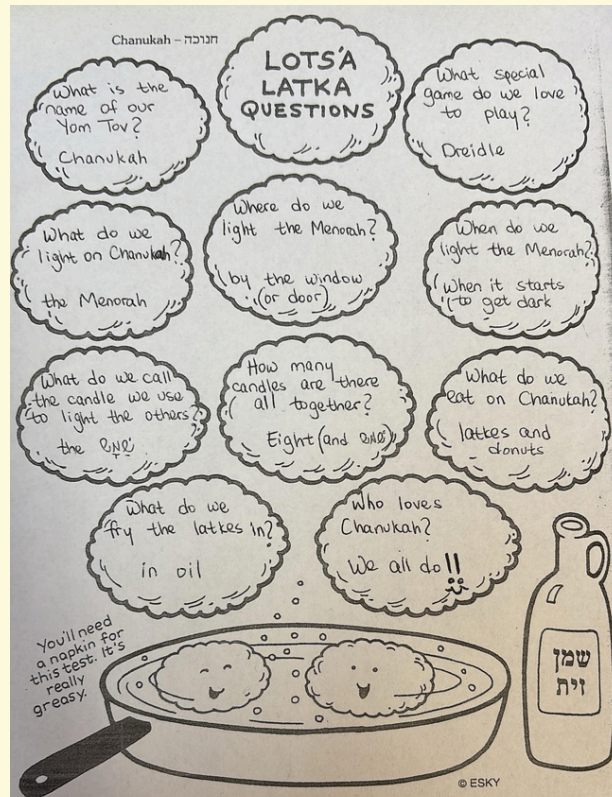 Chanukah – חנוכה
LOTS'A
LATKA
QUESTIONS
What is the
name of our
Yom Tov?
Chanukah
What special
game do we love
to play?
Dreidle
What do we
light on Chanukah?
the Menorah
Where do we
light the Menorah?
by the window
(or door)
When do we
light the Menorah?
When it starts
to get dark
What do we call
the candle we use
to light the others?
the
How many
candles are there
all together?
Eight (and
What do we
eat on Chanukah?
latkes and
donuts
What do we
fry the latkes in?
in oil
Who loves
Chanukah?
We all do!!
You'll need
a napkin for
this test. It's
really
greasy.
שמן
זית
© ESKY